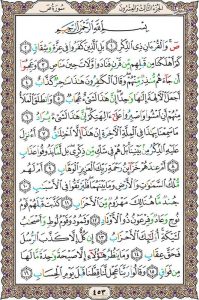 الجزء الثالث والعشرون سورة ص
بِسْمِ اللَّهِ الرَّحْمَٰنِ الرَّحِيمِ
صٓ وَالْقُرْءَانِ ذِي الذِّكْرِ ١ بَلِ الَّذِينَ كَفَرُوا فِي عِزَّةٍ وَشِقَاقٍ ٢
كَمْ أَهْلَكْنَا مِن قَبْلِهِم مِّن قَرْنٍ فَنَادَوا وَّلَاتَ حِينَ مَنَاصٍ ٣ وَعَجِبُوا
أَن جَاءَهُم مُّنذِرٌ مِّنْهُمْ وَقَالَ الْكَٰفِرُونَ هَٰذَا سَٰحِرٌ كَذَّابٌ ٤
أَجَعَلَ الْءَالِهَةَ إِلَٰهًا وَٰحِدًا إِنَّ هَٰذَا لَشَيْءٌ عُجَابٌ ٥ وَانطَلَقَ الْمَلَأُ
مِنْهُمْ أَنِ امْشُوا وَاصْبِرُوا عَلَىٰ ءَالِهَتِكُمْ إِنَّ هَٰذَا لَشَيْءٌ يُرَادُ ٦
مَا سَمِعْنَا بِهَٰذَا فِي الْمِلَّةِ الْءَاخِرَةِ إِنْ هَٰذَا إِلَّا اخْتِلَٰقٌ ٧ أَءُنزِلَ
عَلَيْهِ الذِّكْرُ مِن بَيْنِنَا بَلْ هُمْ فِي شَكٍّ مِّن ذِكْرِي بَل لَّمَّا يَذُوقُوا عَذَابِ
٨ أَمْ عِندَهُمْ خَزَائِنُ رَحْمَةِ رَبِّكَ الْعَزِيزِ الْوَهَّابِ ٩ أَمْ لَهُم
مُّلْكُ السَّمَٰوَٰتِ وَالْأَرْضِ وَمَا بَيْنَهُمَا فَلْيَرْتَقُوا فِي الْأَسْبَٰبِ ١٠
جُندٌ مَّا هُنَالِكَ مَهْزُومٌ مِّنَ الْأَحْزَابِ ١١ كَذَّبَتْ قَبْلَهُمْ قَوْمُ
نُوحٍ وَعَادٌ وَفِرْعَوْنُ ذُو الْأَوْتَادِ ١٢ وَثَمُودُ وَقَوْمُ لُوطٍ وَأَصْحَٰبُ
لْئَيْكَةِ أُولَٰئِكَ الْأَحْزَابُ ١٣ إِن كُلٌّ إِلَّا كَذَّبَ الرُّسُلَ
فَحَقَّ عِقَابِ ١٤ وَمَا يَنظُرُ هَٰؤُلَاءِ إِلَّا صَيْحَةً وَٰحِدَةً مَّا لَهَا
مِن فَوَاقٍ ١٥ وَقَالُوا رَبَّنَا عَجِّل لَّنَا قِطَّنَا قَبْلَ يَوْمِ الْحِسَابِ ١٦
٤٥٣